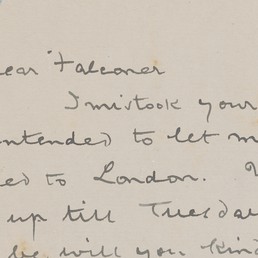 ear Falconer
I mistook your
ntended to let m
ed to London.
up till Tuesda
be will you kind